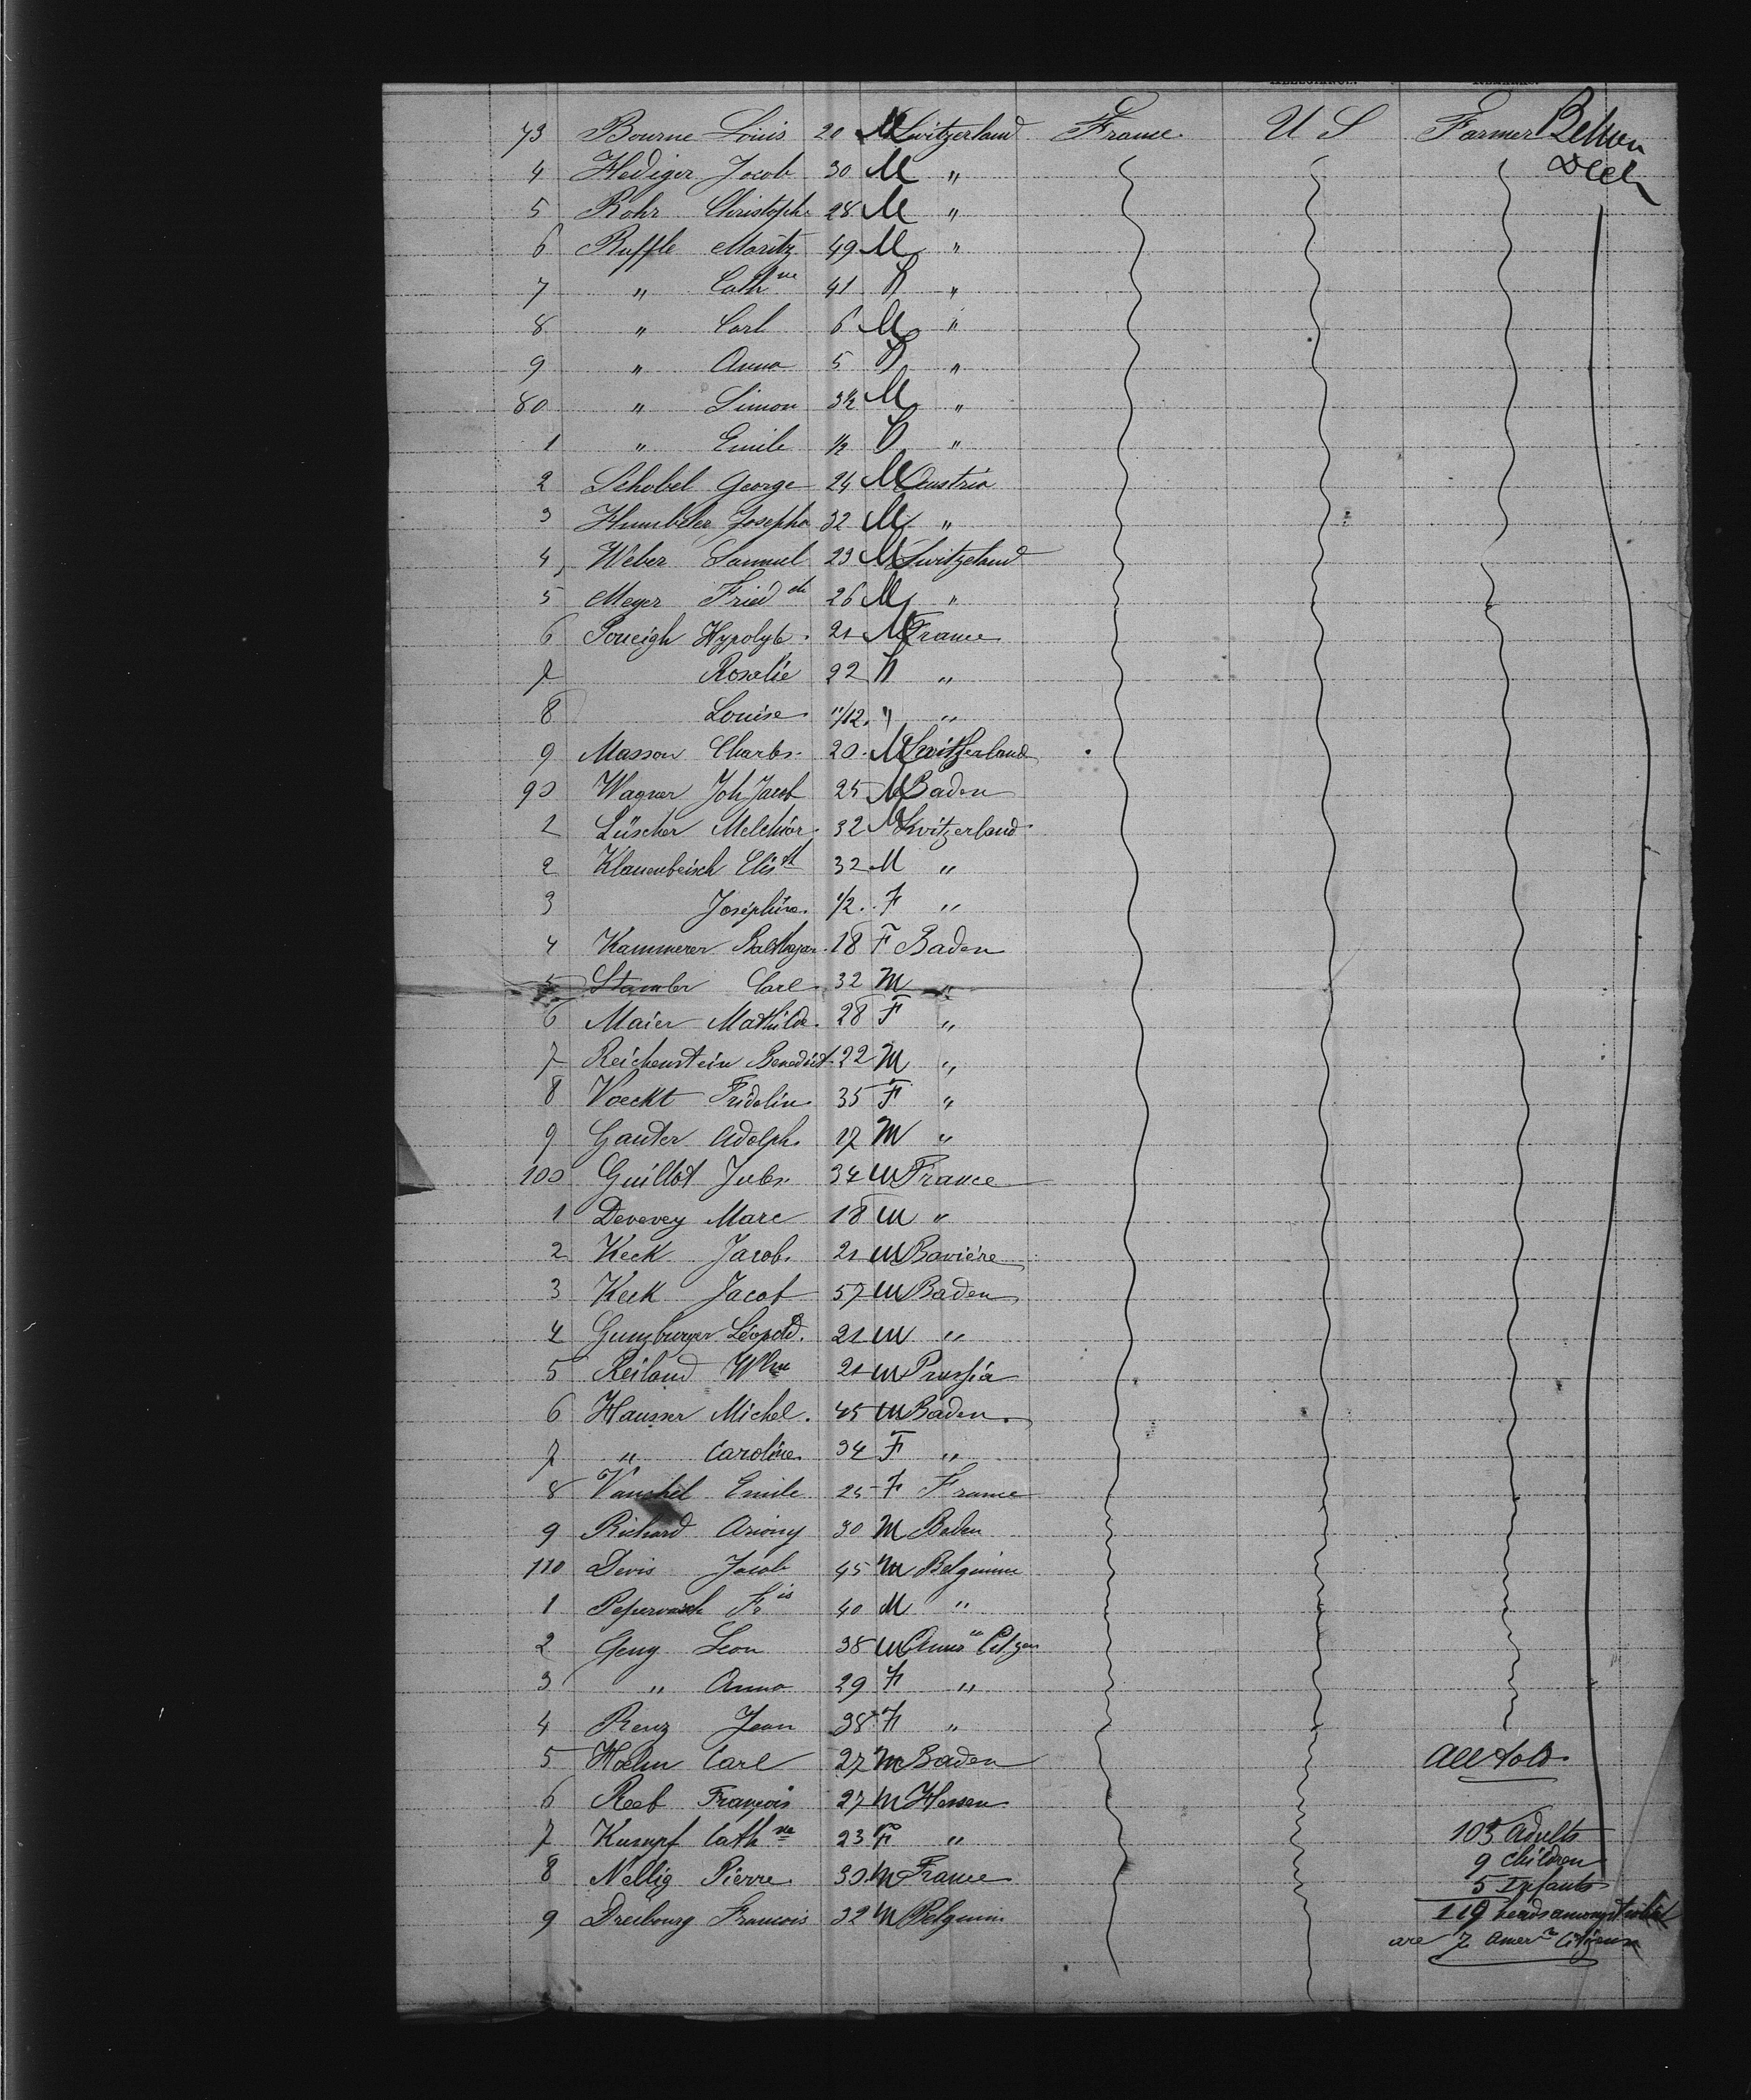 73 Bourne Louis 20 M Switzerland France U S Farmer Between
4 Hediger Jacob 30 M " Deck
5 Rohr Christoph 28 M "
6 Ruffle Moritz 49 M "
7 " Cath ne 41 "
8 " Carl 6 M "
9 " Anna 5 "
80 " Simon 3½ M "
1 " Emile ½ "
2 Schobel George 24 M Austria
3 Humbeler Josepha 32 M "
4 Weber Samuel 23 M Switzeland
5 Meyer Fried ch 26 M "
6 Hypolyte 21 M France
7 Roselie 22 "
8 Louise 11/12 " "
9 Masson Charles 20 M Switzerland
90 Wagner Joh Jacob 25 M Baden
1 Lüscher Melchior 32 M Switzerland
2 Klauenbeisch Elis th 32 M "
3 Joséphine 1/2 F "
4 Kammerer Balthazar 18 F Baden
5 Stamler Carl 32 M "
6 Maier Mathilde 28 F "
7 Reichenstein Benedict 22 M "
8 Voeckt Fridolin 35 F "
9 Ganter Adolph 17 M "
100 Guillot Jules 34 M France
1 Devevey Marc 18 M "
2 Keck Jacob 21 M Baviére
3 Keck Jacob 57 M Baden
4 Gunzburger Léopold 21 M "
5 Reiland Wlm 21 M Prussia
6 Hausser Michel 45 M Baden
7 " Caroline 34 F "
8 Vauchel Emile 25 F France
9 Richard 30 M Baden
110 Devis Jacob 45 M Belgium
1 Fr is 40 M "
2 Geng Leon 38 M Amer n Citzen
3 " Anna 29 F "
4 Renz Jean 38 F "
5 Hahn Carl 27 M Baden All told
6 Reeb François 27 M Hessen
7 Kumpf Cath ne 23 F " 105 Adults
8 Nellig Pierre 30 M France 9 Children
5 Infants
9 Dreibourg Francois 32 M Belguim 119 heads amongst which
are 7 Amer n Citizens